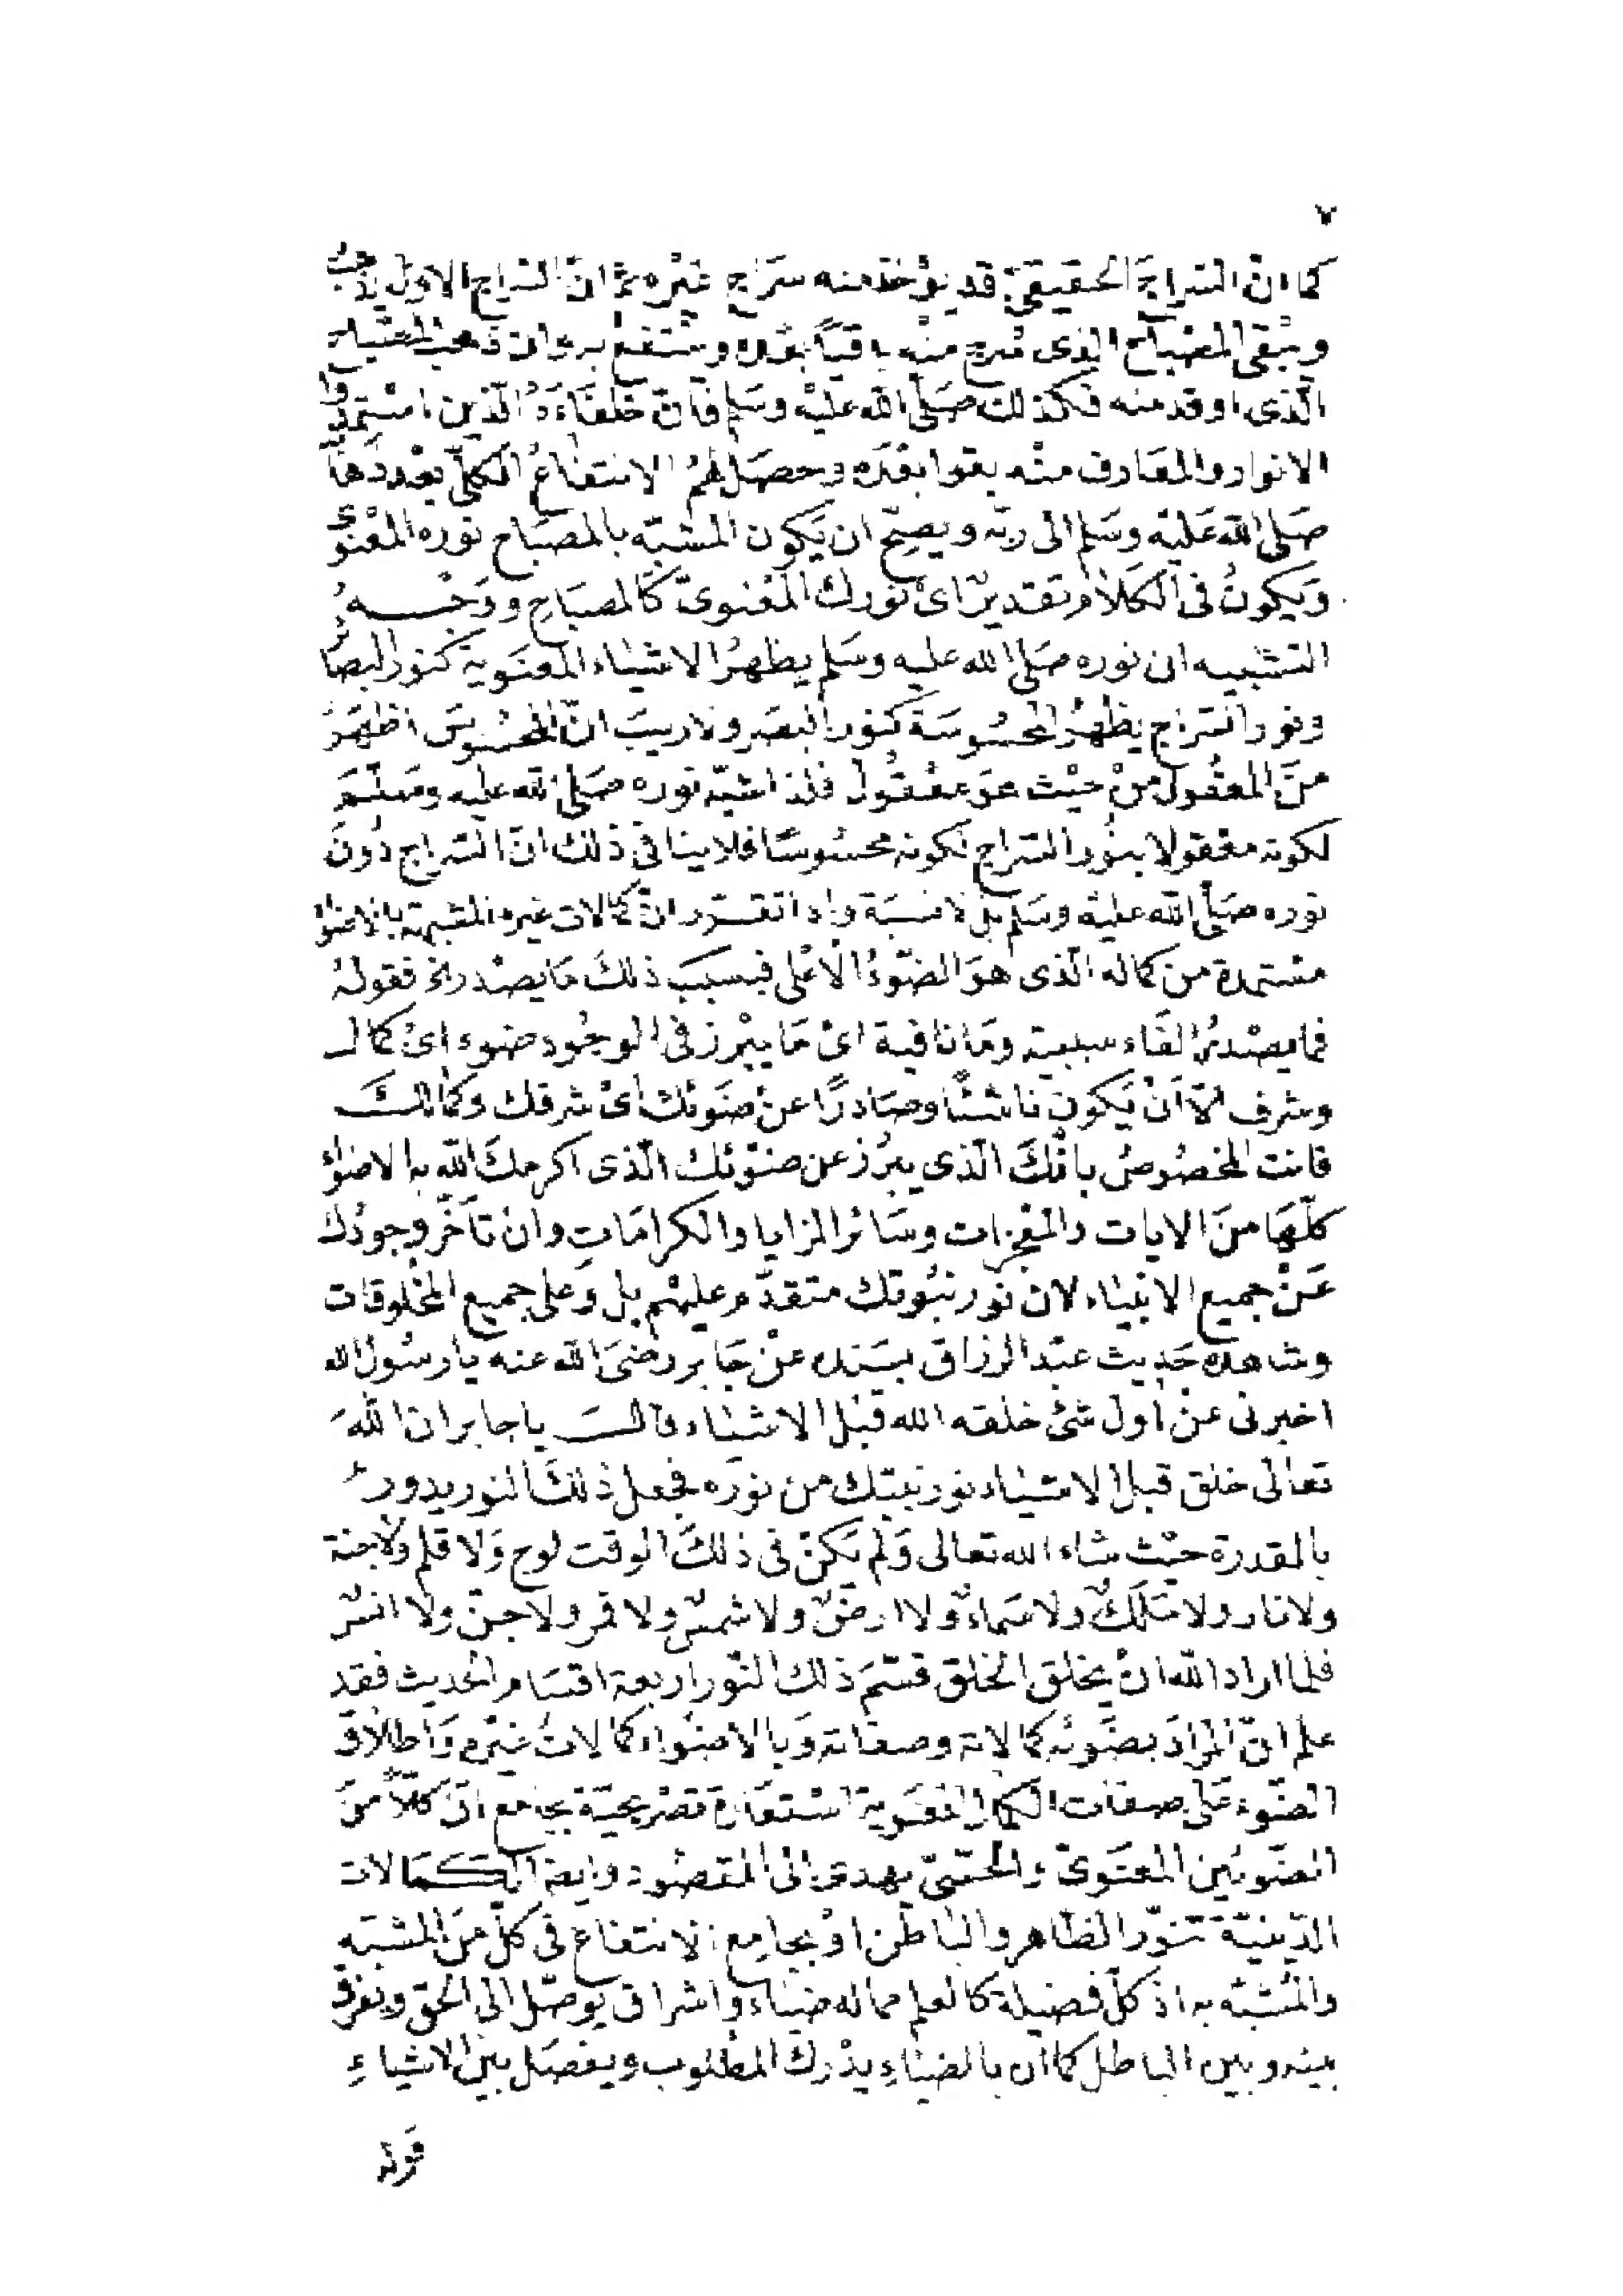 ٧
كما ان السراج الحقيقى قد يؤخذ منه سراج غيره ثم ان السراج الاول يذهب
ويبقى المصباح الذى سرج منه باقيا بعده وينتفع به وان ذهب المصباح
الذى اوقد منه فكذلك صلى الله عليه وسلم فان خلفاءه الذين استمدوا
الانوار والمعارف منه بقوا بعده وحصل لهم الانتفاع الكلى بعد ذهابه
صلى الله عليه وسلم الى ربه ويصح ان يكون المشبه بالمصباح نوره المعنوى
ويكون فى الكلام تقدير اى نورك المعنوى كالمصباح ووجه
التشبيه ان نوره صلى الله عليه وسلم يظهر الاشياء المعنوية كنور البصائر
ونور السراج يظهر المحسوسة كنور البصر ولا ريب ان المحسوس اظهر
من المعقول من حيث هو معقول فلذا شبه نوره صلى الله عليه وسلم
لكونه معقولا بنور السراج لكونه محسوسا فلا ينافى ذلك ان السراج دون
نوره صلى الله عليه وسلم بل لا نسبة واذا تقرر ان كمالات غيره المشبهة بالاضواء
مستمدة من كماله الذى هو الضوء الاعلى فبسبب ذلك ما يصدر الخ فقوله
فما يصدر الفاء سببية وما نافية اى ما يبرز فى الوجود ضوء اى كمال
وشرف الا ان يكون ناشئا وصادرا عن ضوئك اى شرفك وكمالك
فانت المخصوص بانك الذى يبرز عن ضوئك الذى اكرمك الله به الاضواء
كلها من الايات والمعجزات وسائر المزايا والكرامات وان تأخر وجودك
عن جميع الانبياء لان نور نبوتك متقدم عليهم بل وعلى جميع المخلوقات
وشاهده حديث عبد الرزاق بسنده عن جابر رضى الله عنه يا رسول الله
اخبرنى عن اول شئ خلقه الله قبل الاشياء قال يا جابر ان الله
تعالى خلق قبل الاشياء نور نبيك من نوره فجعل ذلك النور يدور
بالمقدرة حيث شاء الله تعالى ولم يكن فى ذلك الوقت لوح ولا قلم ولا جنة
ولا نار ولا ملك ولا سماء ولا ارض ولا شمس ولا قمر ولا جن ولا انس
فلما اراد الله ان يخلق الخلق قسم ذلك النور اربعة اقسام الحديث فقد
علم ان المراد بضوئه كمالاته وصفاته وبالاضواء كمالات غيره واطلاق
الضوء على صفات الكمال المعنوية استعارة تصريحية بجامع ان كلا من
الضوئين المعنوى والحسى يهدى الى المقصود وايضا الكمالات
الدينية تنور الظاهر والباطن او بجامع الانتفاع فى كل من المشبه
والمشبه به اذ كل فضيلة كالعلم مما له ضياء واشراق يوصل الى الحق ويفرق
بينه وبين الباطل كما ان بالضياء يدرك المطلوب ويفصل بين الاشياء
قوله